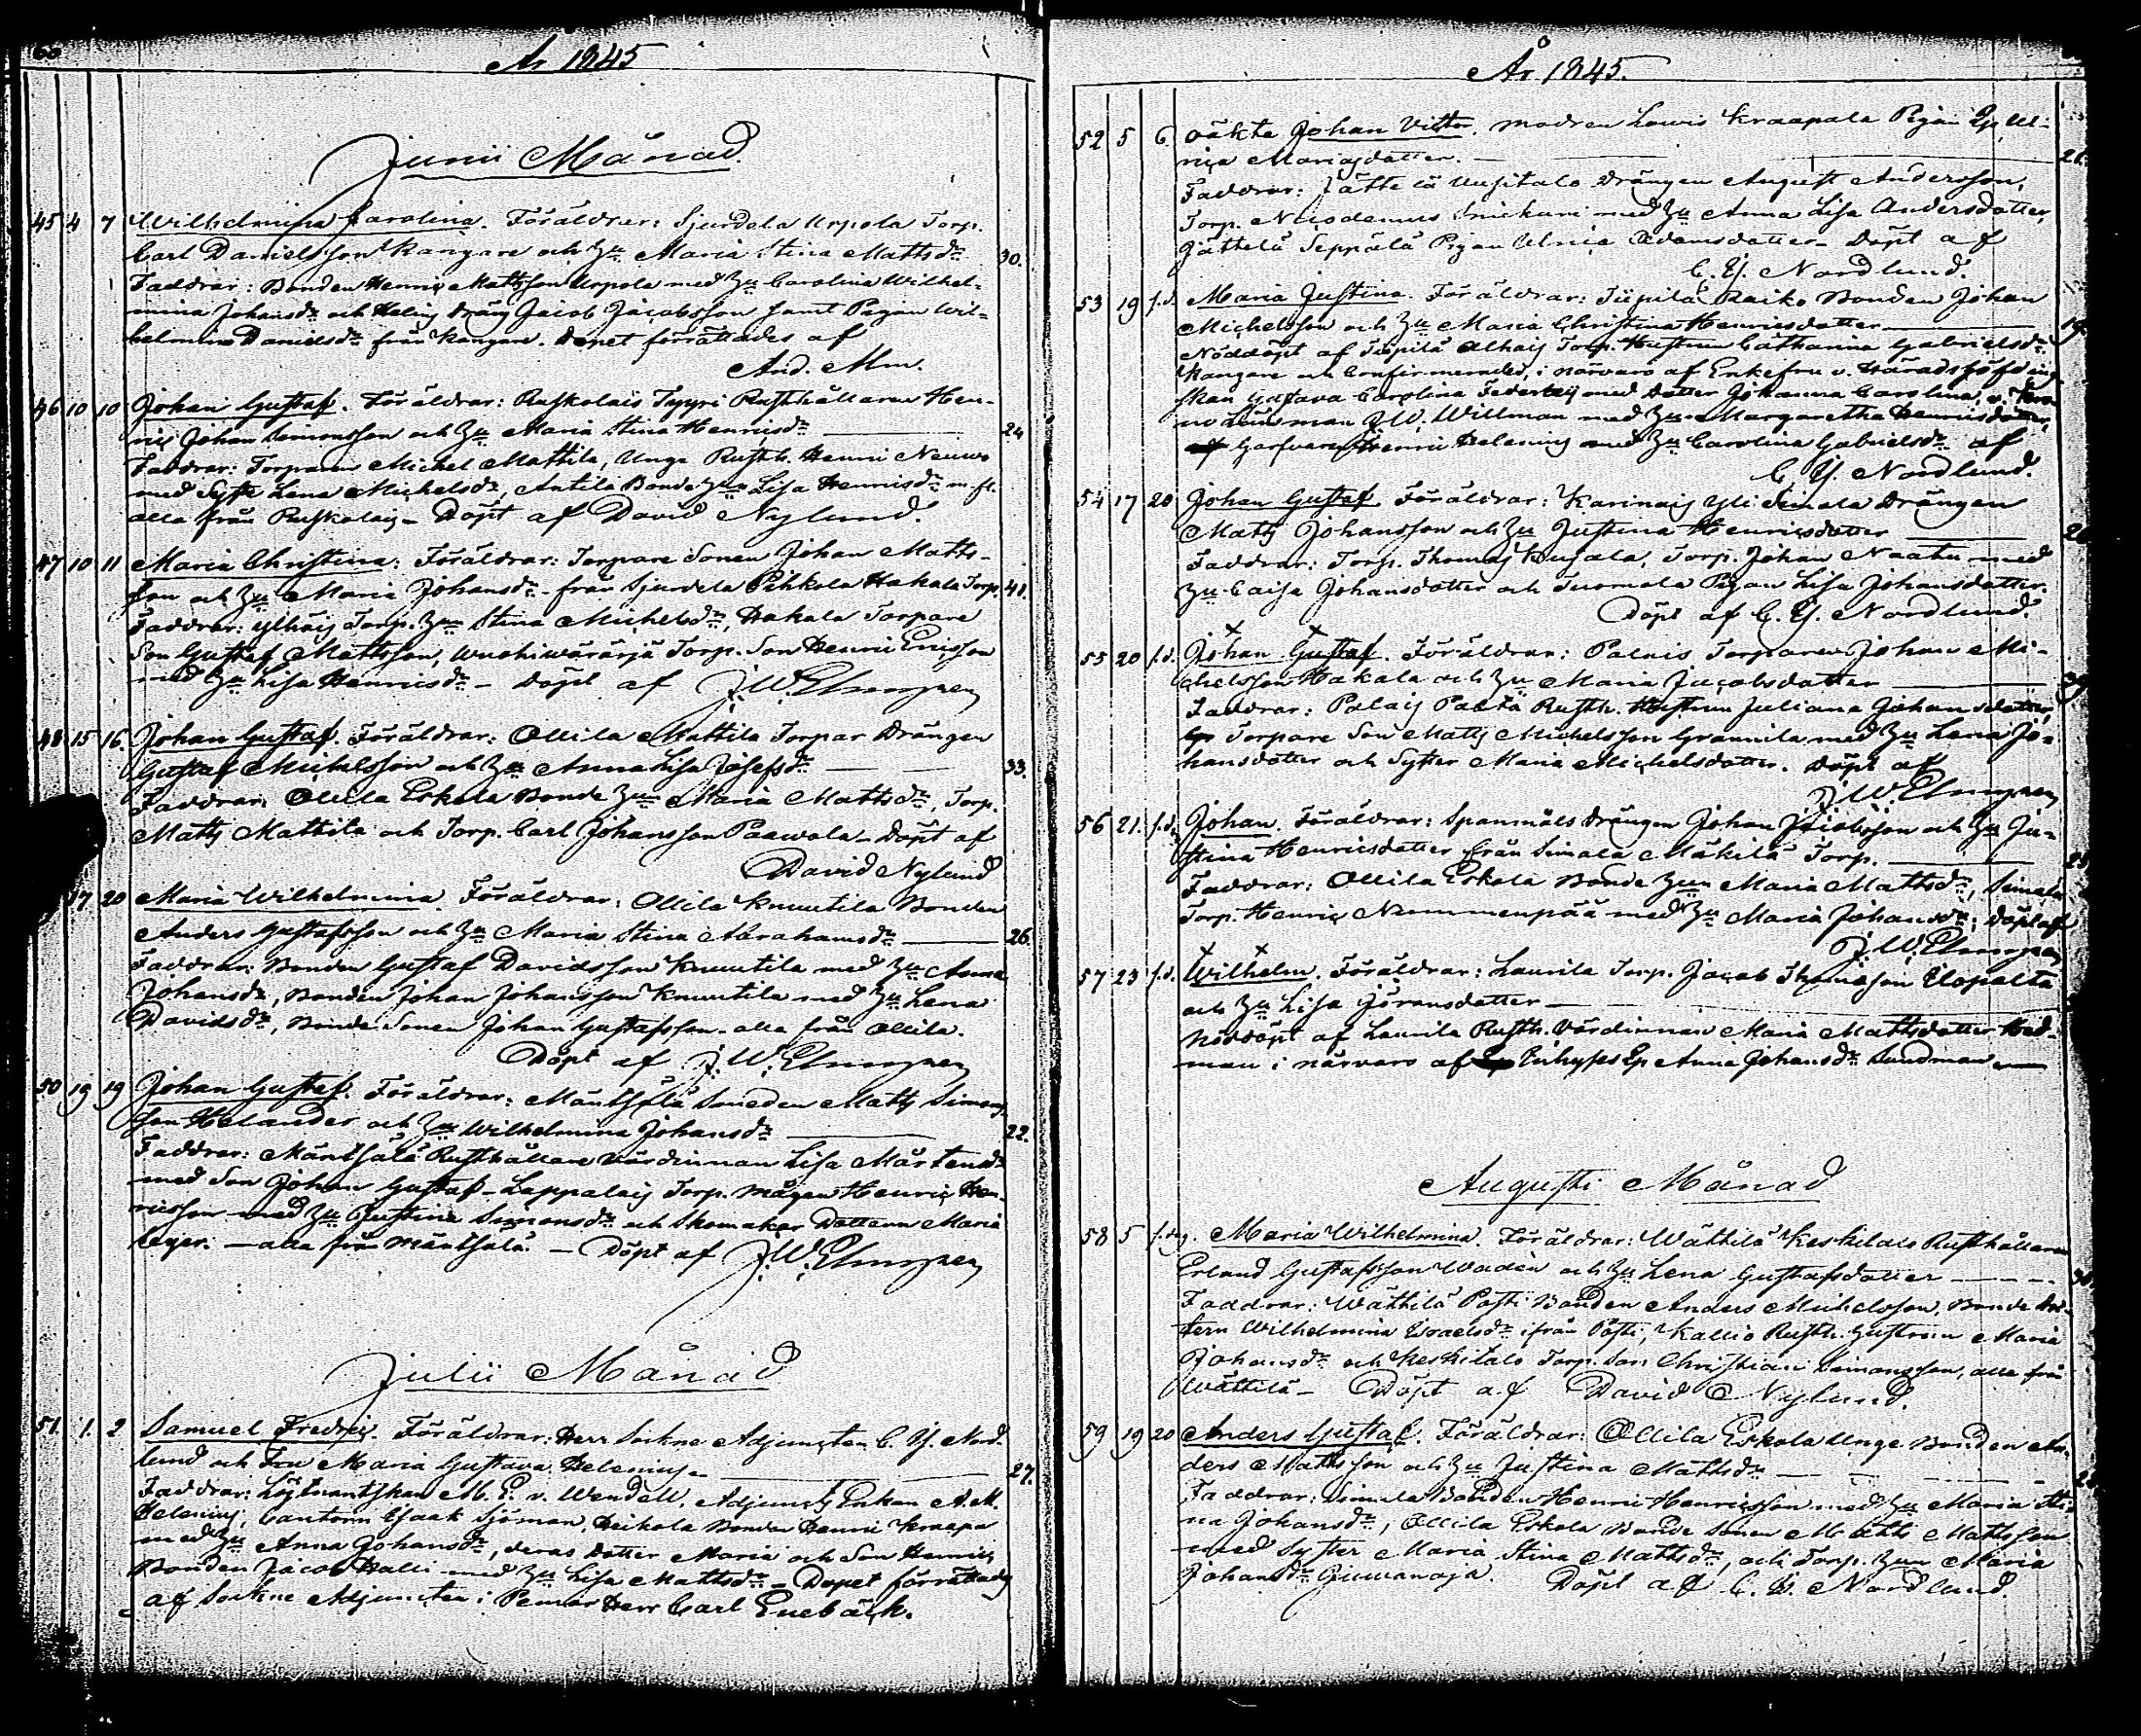 År 1845
Junii Månad.
45 4 7 Wilhelmina Carolina. Föräldrar: Sjurdela Urpola Torp.
Carl Danielsson Kangare och Hu Maria Stina Mattsdr 30.
Faddrar: Bonden Henric Mattsson Urpola med Hu Carolina Wilhel-
mina Johansdr och Heling dräng Jacob Jacobsson samt Pigan Wil-
helmina Danielsdr från Kangare. Dopet förrättades af
And. Mm.
46 10 10 Johan Gustaf. Föräldrar: Ruskolais Typpi Rusthållaren Hen-
ric Johan Simonsson och Hu Maria Stina Henricsdr 24
Faddrar: Torparen Michel Mattila, Unge Rusth. Henric Neuvo
med Syster Lena Michelsdr, Antila Bonde Hun Lisa Henricsdr m.fl.
alla från Ruskolais - Döpt af David Nylund.
47 10 11 Maria Christina: Föräldrar: Torpare Sonen Johan Matts-
son och Hu Maria Johansdr - från Sjurdela Pihkola Hakala Torp. 41.
Faddrar: Ylhäis Torp. Hun Stina Michelsdr, Hakala Torpare
Son Gustaf Mattsson, Torp. Son Henric Ericsson
med Hu Lisa Henricsdr - Döpt af J. W. Elmgren
48 15 16 Johan Gustaf. Föräldrar: Ollila Mattila Torpar Drängen
Gustaf Michelsson och Hu Anna Lisa Josefsdr 33.
Faddrar: Ollila Eskola Bonde Hun Maria Mattsdr, Torp.
Matts Mattila och Torp. Carl Johansson Paawola - Döpt af
David Nylund
17 20 Maria Wilhelmina. Föräldrar: Ollila Knuutila Bonden
Anders Gustafsson och Hu Maria Stina Abrahamsdr 26.
Faddrar: Bonden Gustaf Davidsson Knuutila med Hu Anna
Johansdr, Bonden Johan Johansson Knuutila med Hu Lena
Davidsdr, Bonde Sonen Johan Gustafsson - alla från Ollila.
Döpt af J. W. Elmgren
50 19 19 Johan Gustaf. Föräldrar: Mäntsälä Smeden Matts Simons-
son Helander och Hu Wilhelmina Johansdr 22.
Faddrar: Mäntsälä Rusthållare Värdinnan Lisa Mårtensdr
med Son Johan Gustaf - Lappalais Torp. Mågen Henric Hen-
ricsson med Hu Justina Simonsdr och Skomakar Dottern Maria
- alla från Mäntsälä. - Döpt af J. W. Elmgren
Julii Månad
51. 1. 2 Samuel Fredric. Föräldrar: Herr Sockne Adjuncten C. Y. Nord-
lund och Fru Maria Gustava Helenius - 27.
Faddrar: Löjtnantskan M. E. v. Wendell, Adjuncts Enkan A. M.
Helenius, Cantorn Isaak Sjöman, Heikola Bonden Henric Kraapa
med Hu Anna Johansdr, deras Dotter Maria och Son Henric,
Bonden Jacob Halli med Hu Lisa Mattsdr - Dopet förrättades
af Sockne Adjuncten i Pemar Herr Carl Enebäck.
År 1845.
52 5 6 oäkta Johan Victor. Modren Lowis Kraapala Pigan Ep Ul-
rica Mariasdotter. 21.
Faddrar: Jättelä Uusitalo Drängen August Andersson,
Torp. Nicodemus Snickari med Hu Anna Lisa Andersdotter,
Jättelä Seppälä Pigan Ulrica Adamsdotter - Döpt af
C. Y. Nordlund.
53 19 s.d. Maria Justina. Föräldrar: Tiipilä Raiko Bonden Johan
Michelsson och Hu Maria Christina Henricsdotter 19.
Nöddöpt af Tiipilä Alhais Torp. Hustrun Catharina Gabrielsdr
Kangare och Confirmerades i närvaro af Enkefru v. Häradshöfding
skan Gustava Carolina Federley med Dotter Johanna Carolina, v. Kro-
no Länsman J. W. Willman med Hu Margaretha Henricsdotter,
Garfvaren Henric Helenius med Hu Carolina Gabrielsdr af
C. Y. Nordlund.
54 17 20 Johan Gustaf. Föräldrar: Karinais Yli Simala Drängen
Matts Johansson och Hu Justina Henricsdotter 2
Faddrar: Torp. Thomas Kujala, Torp. Johan Naatu med
Hu Caisa Johansdotter och Tuomola Pigan Lisa Johansdotter.
Döpt af C. Y. Nordlund.
55 20 s.d. Johan Gustaf. Föräldrar: Palais Torparen Johan Mi-
chelsson Hakala och Hu Maria Jacobsdotter 39
Faddrar: Palais Paltä Rusth. Hustrun Juliana Johansdotter,
Torpare Son Matts Michelsson Grannila med Hu Lena Jo-
hansdotter och Syster Maria Michelsdotter. Döpt af
J. W. Elmgren
56 21. s.d. Johan. Föräldrar: Spannmåls Drängen Johan Jacobsson och Hu Ju-
stina Henricsdotter från Simala Mäkilä Torp. 25
Faddrar: Ollila Eskola Bonde Hun Maria Mattsdr, Simala
Torp. Henric Nummenpää med Hu Maria Johansdr; Döpt af
J. W. Elmgren
57 23 s.d. Wilhelm. Föräldrar: Laurila Torp. Jacob Thomasson Elopelta
och Hu Lisa Göransdotter -
Nöddöpt af Laurila Rusth. Värdinnan Maria Mattsdotter Hed-
man i närvaro af Inhyses Ep Anna Johansdr Sundman
Augusti Månad
58 5 s.dag. Maria Wilhelmina. Föräldrar: Wättilä Keskitalo Rusthållaren
Erland Gustafsson Wadén och Hu Lena Gustafsdotter
Faddrar: Wättilä Posti Bonden Anders Michelsson, Bonde Dot-
tern Wilhelmina Israelsdr ifrån Posti, Kallio Rusth. Hustrun Maria
Johansdr och Keskitalo Torp. Son Christian Simonsson, alla från
Wättilä - Döpt af David Nylund.
59 19 20 Anders Gustaf. Föräldrar: Ollila Eskola Unge Bonden An-
ders Mattsson och Hu Justina Mattsdr
Faddrar: Simala Bonden Henric Henricsson med Hu Maria Sti-
na Johansdr, Ollila Eskola Bonde Sonen Matts Mattsson
med Syster Maria Stina Mattsdr, och Torp. Hun Maria
Johansdr Juwanoja. Döpt af C. Y. Nordlund.